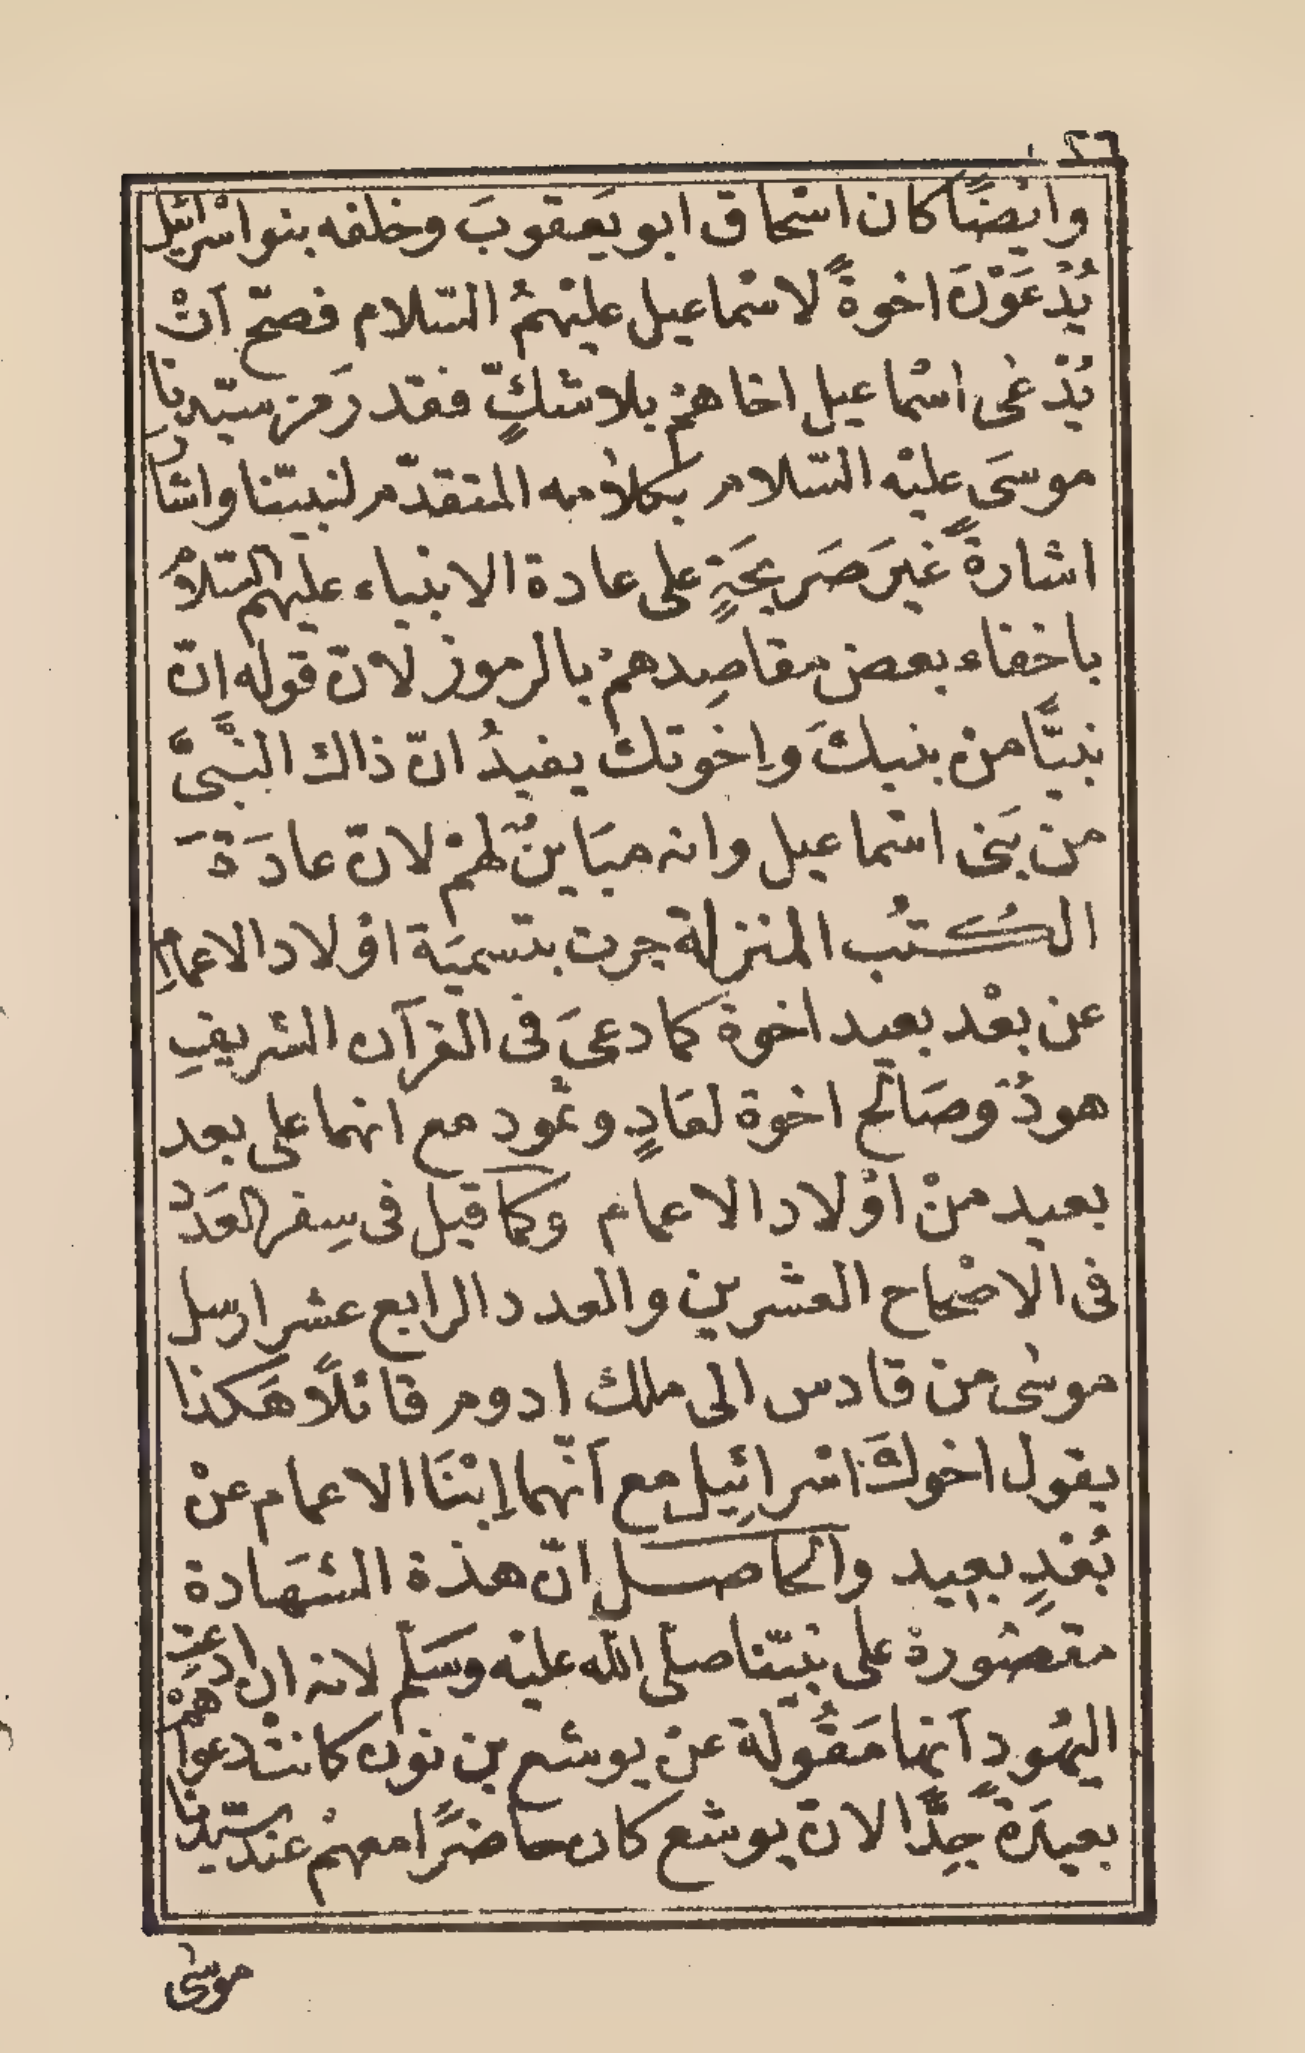 ٢٦
وايْضًا كان اسْحاق ابو يَعقوبَ وخلفه بنو اسْرائيل
يُدْعَوْنَ اخوةً لاسْماعيل عليْهمُ السّلام فصحّ اَنْ
يُدْعٰى اسْماعيل اخاهمْ بلا شكٍّ فقد رَمز سيّدنا
موسَى عليْه السّلام بكلامه المتقدّم لنبيّنا واشار
اشارةً غيرَ صَريحَةٍ على عادة الانبياء عليهم السّلامُ
باخفاء بعض مقاصِدهمْ بالرموز لانّ قوله اِنّ
نبيًّا منْ بنيكَ واِخوتك يفيدُ انّ ذاك النَّبىَّ
من بَنى اسْماعيل وانه مبَاينٌ لَهمْ لانّ عادَةَ
الكُتبُ المنزلة جرت بتسميَة اوْلاد الاعمامِ
عن بعْد بعيد اخوة كما دعىَ فى القرآن الشريفِ
هودُ وصَالح اخوة لعَادٍ وثمود مع انهما على بعد
بعيد منْ اوْلاد الاعمام وكما قيل فى سِفر العَدَدْ
فى الاصْحاح العشرين والعدد الرابع عشر ارسل
موسٰى من قادس الى ملك ادوم قائلًا هَكذا
يقول اخوكَ اسْرائِيل مع اَنّهما اِبْنَا الاعمام عنْ
بُعْدٍ بعيد والحاصل انّ هذة الشهَادة
مقصُورة على نبيّنا صلّى الله عليْه وَسَلّم لانه ان ادعت
اليهُود اَنها مَقُولة عنْ يوشع بن نون كانتْ دعواهمْ
بعيدَةً جِدًّا لانّ يوشع كان حاضرًا معهمْ عند سيّدنا
موسٰى